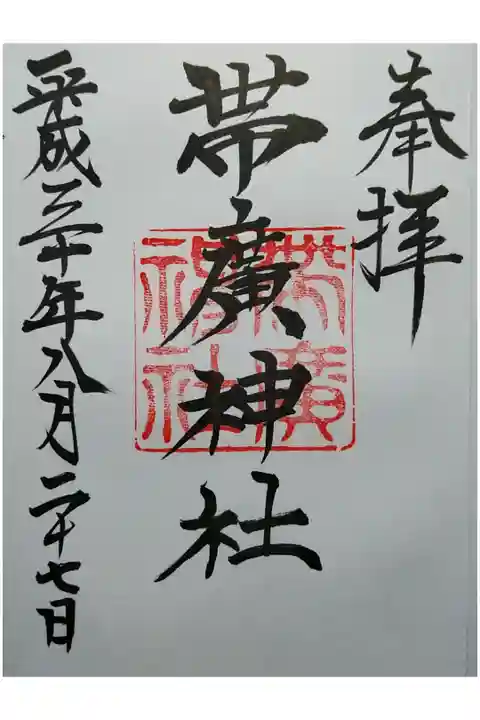 奉拝
帯廣神社
帯廣神社
平成三十年八月二十七日